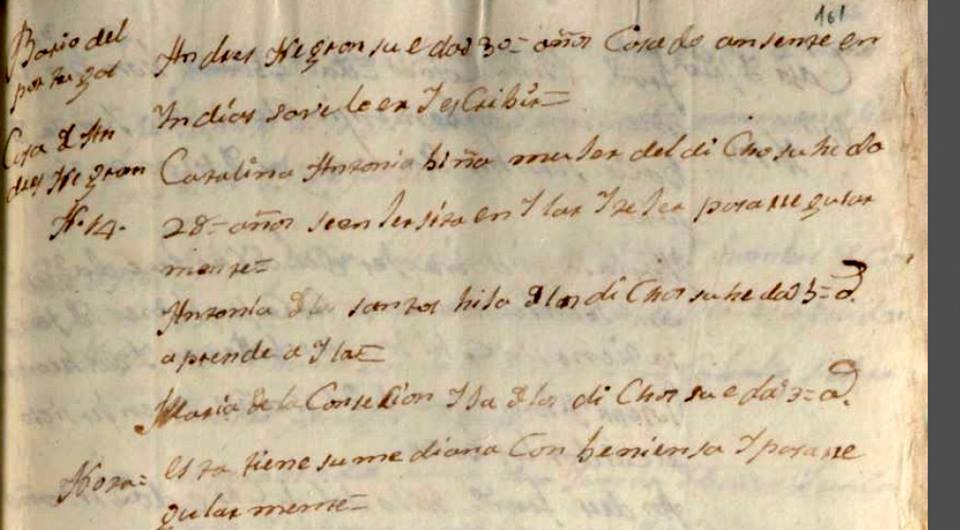 161
Bario del
portugol
Casa d An
dres Negron
N. 14.
Andres Negron su edad 30 = años Casado ausente en
Indias save leer Y esCribir =
Catalina Antonia biña muxer del diCho su hedad
28 = años seenxersita en Ylar Y texer pasa re gular
mente =
Antonia d los santos hixa d los diChos su hedad 5 = a.
aprende a Ylar =
Maria de la ConseCion Yxa d los diChos su edad 3 = a.
Nota =
esta tiene su mediana Conbeniensa Y pasa re
gular mente =